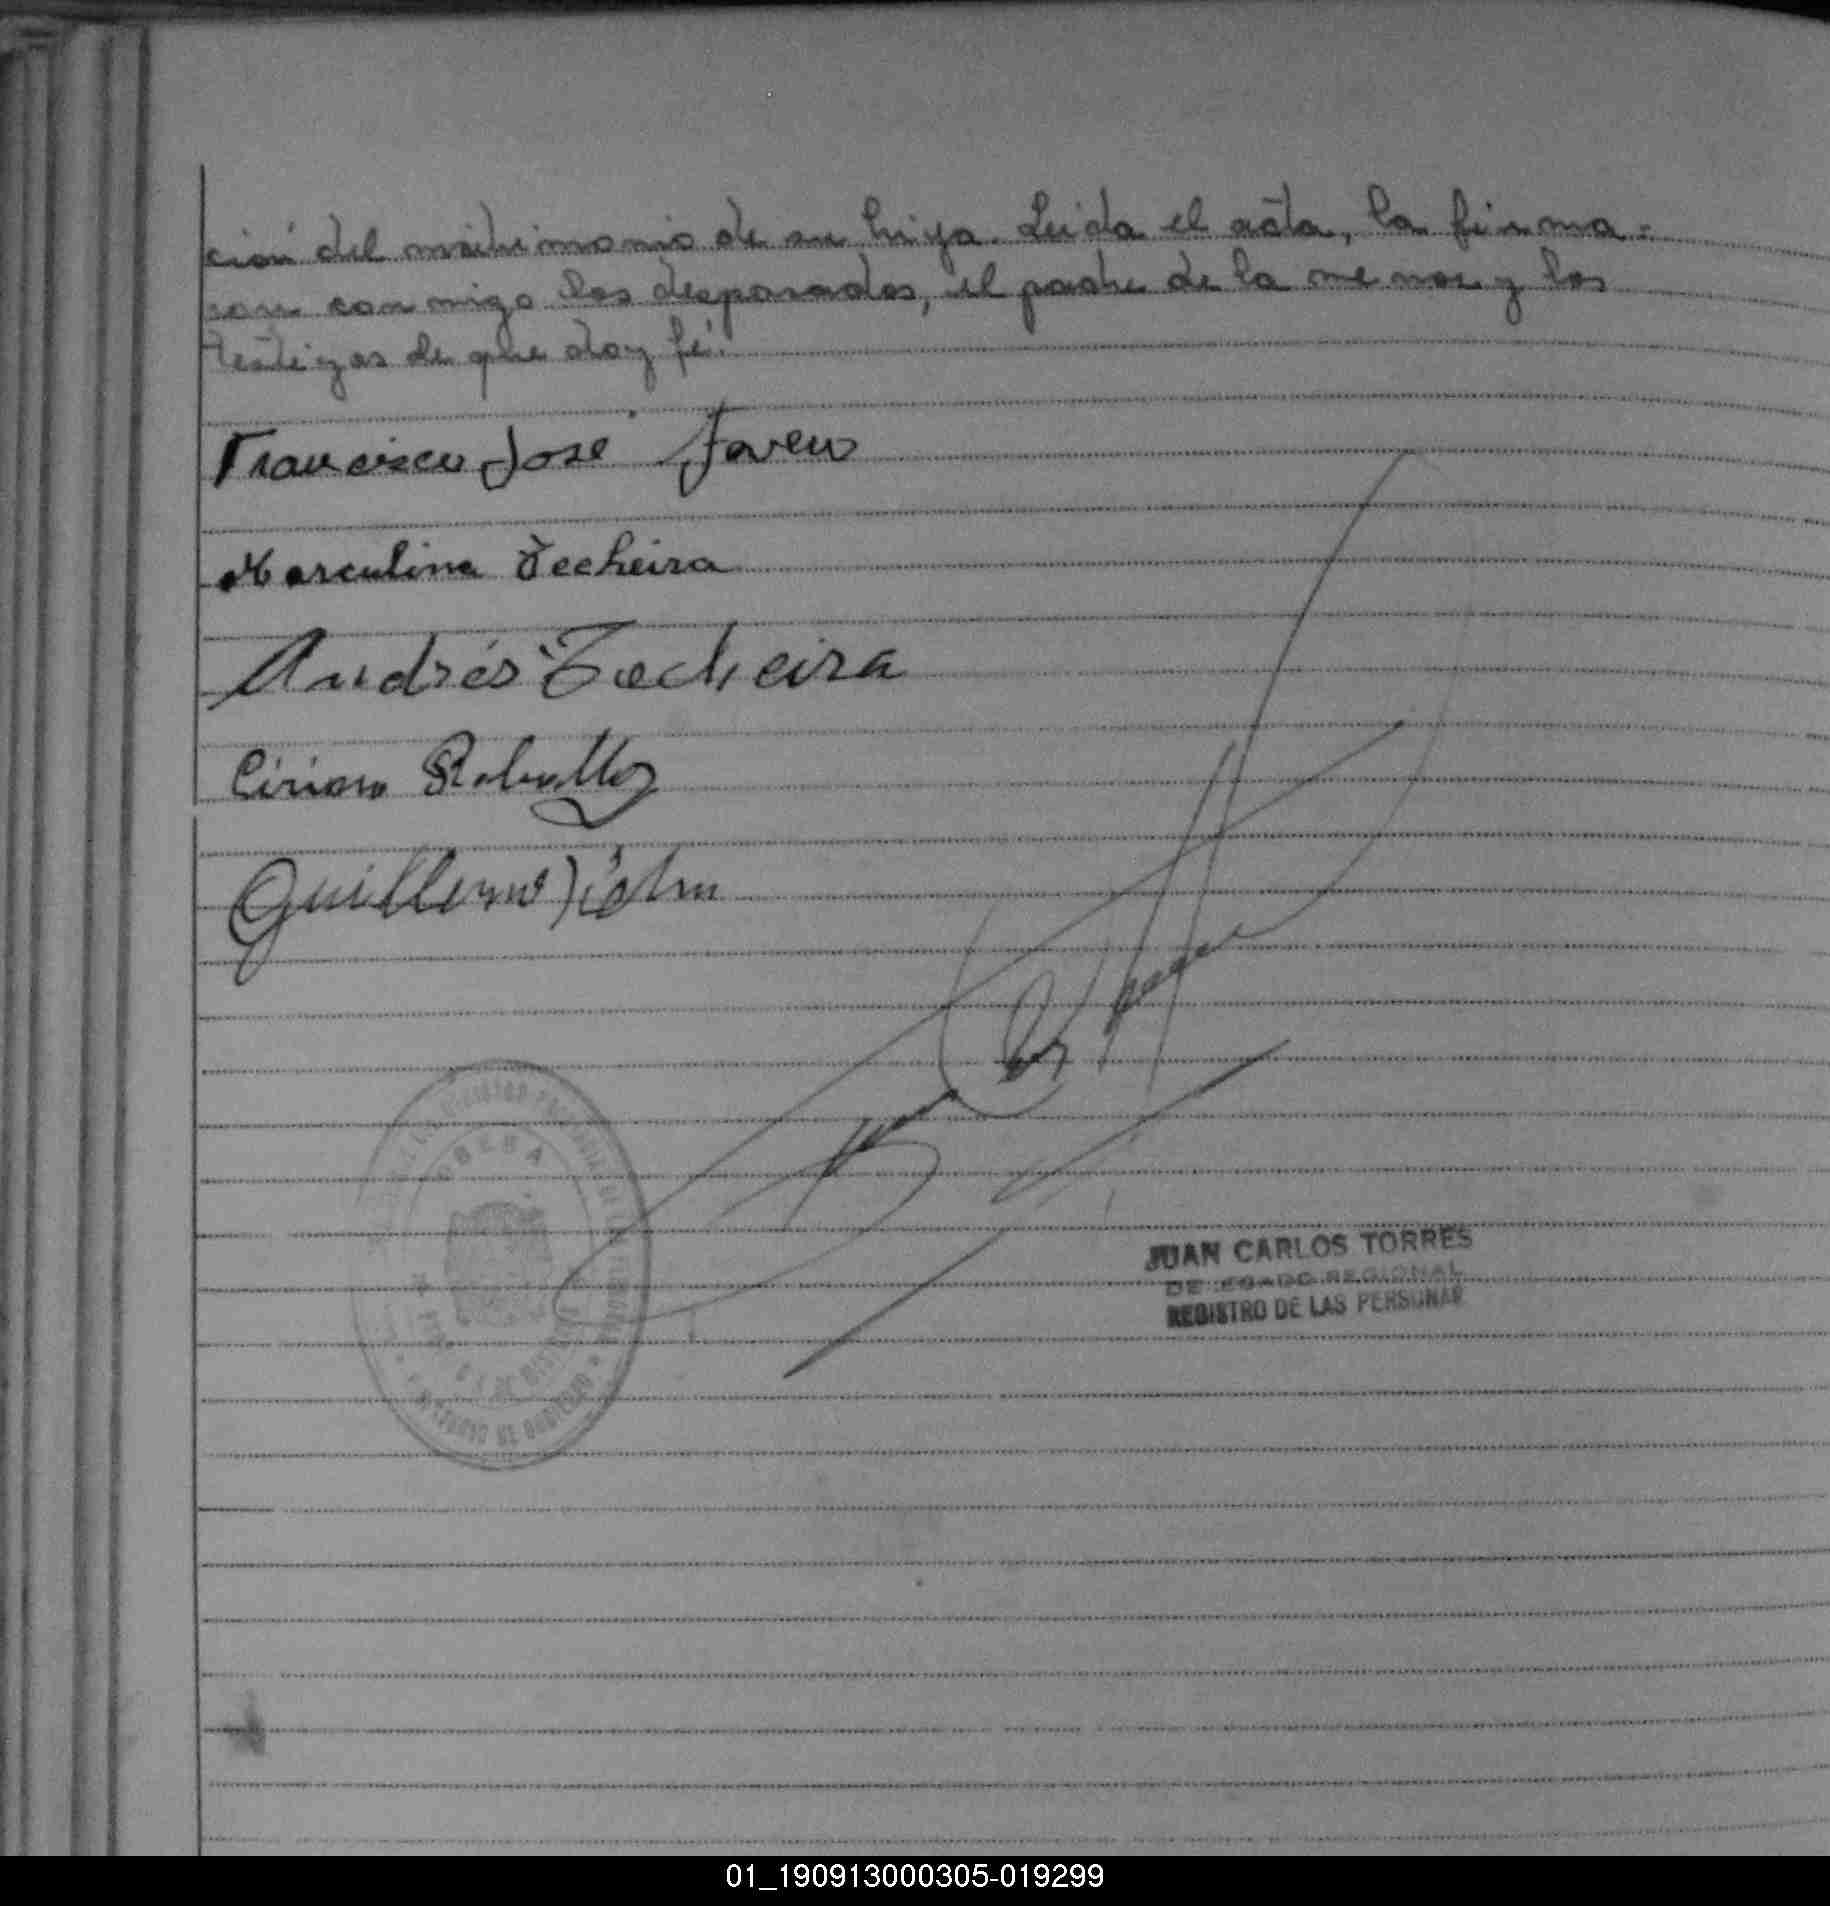 ción del matrimonio de su hija. Leida el acta, la firma=
ron conmigo los desposados, el padre de la menor y los
testigos de que doy fé.
Francisco José Joven
Marculina Techeira
Andrés Techeira
Guillermo
OBERA
JUAN CARLOS TORRES
DELEGADO REGIONAL
REGISTRO DE LAS PERSONAS
01_190913000305-019299